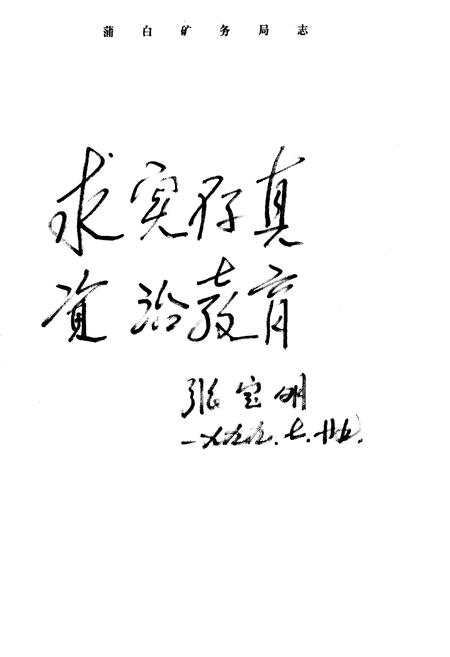 蒲白矿务局志
求实存真
资治教育
张宝明
一九九九.七.廿五.